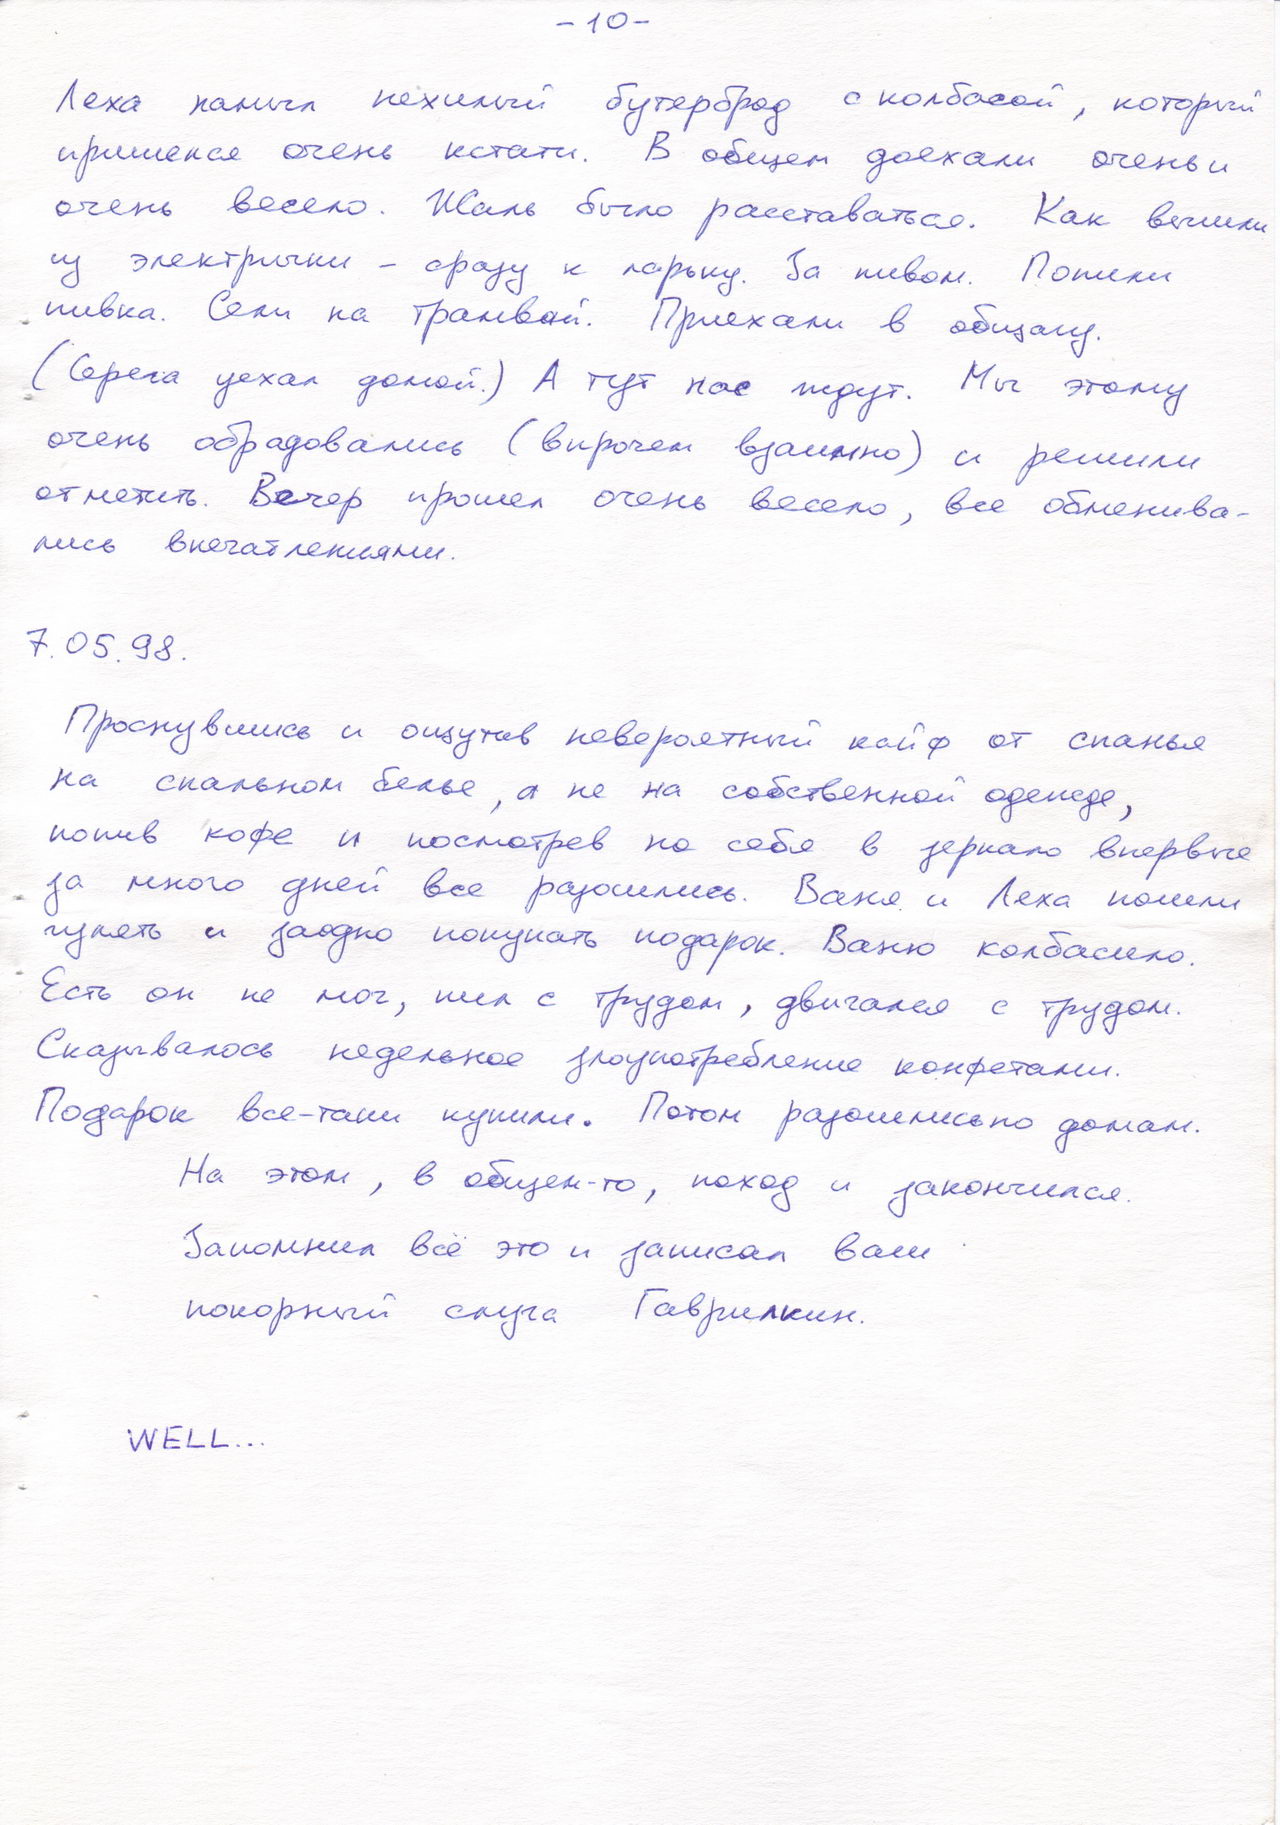 -10-
Леха намыл нехилый бутерброд с колбасой, который
пришелся очень кстати. В общем доехали очень и
очень весело. Жаль было расставаться. Как вышли
из электрички - сразу к ларьку. За пивом. Попили
пивка. Сели на трамвай. Приехали в общагу.
(Серега уехал домой.) А тут нас ждут. Мы этому
очень обрадовались (впрочем взаимно) и решили
отметить. Вечер прошел очень весело, все обменива-
лись впечатлениями.
7.05.98.
Проснувшись и ощутив невероятный кайф от спанья
на спальном белье, а не на собственной одежде,
попив кофе и посмотрев на себя в зеркало впервые
за много дней все разошлись. Ваня и Леха пошли
гулять и заодно покупать подарок. Ваню колбасило.
Есть он не мог, пил с трудом, двигался с трудом.
Сказывалось недельное злоупотребление конфетами.
Подарок все-таки купили. Потом разошлись по домам.
На этом, в общем-то, поход и закончился.
Запомнил всё это и записал ваш
покорный слуга Гаврилкин.
WELL...